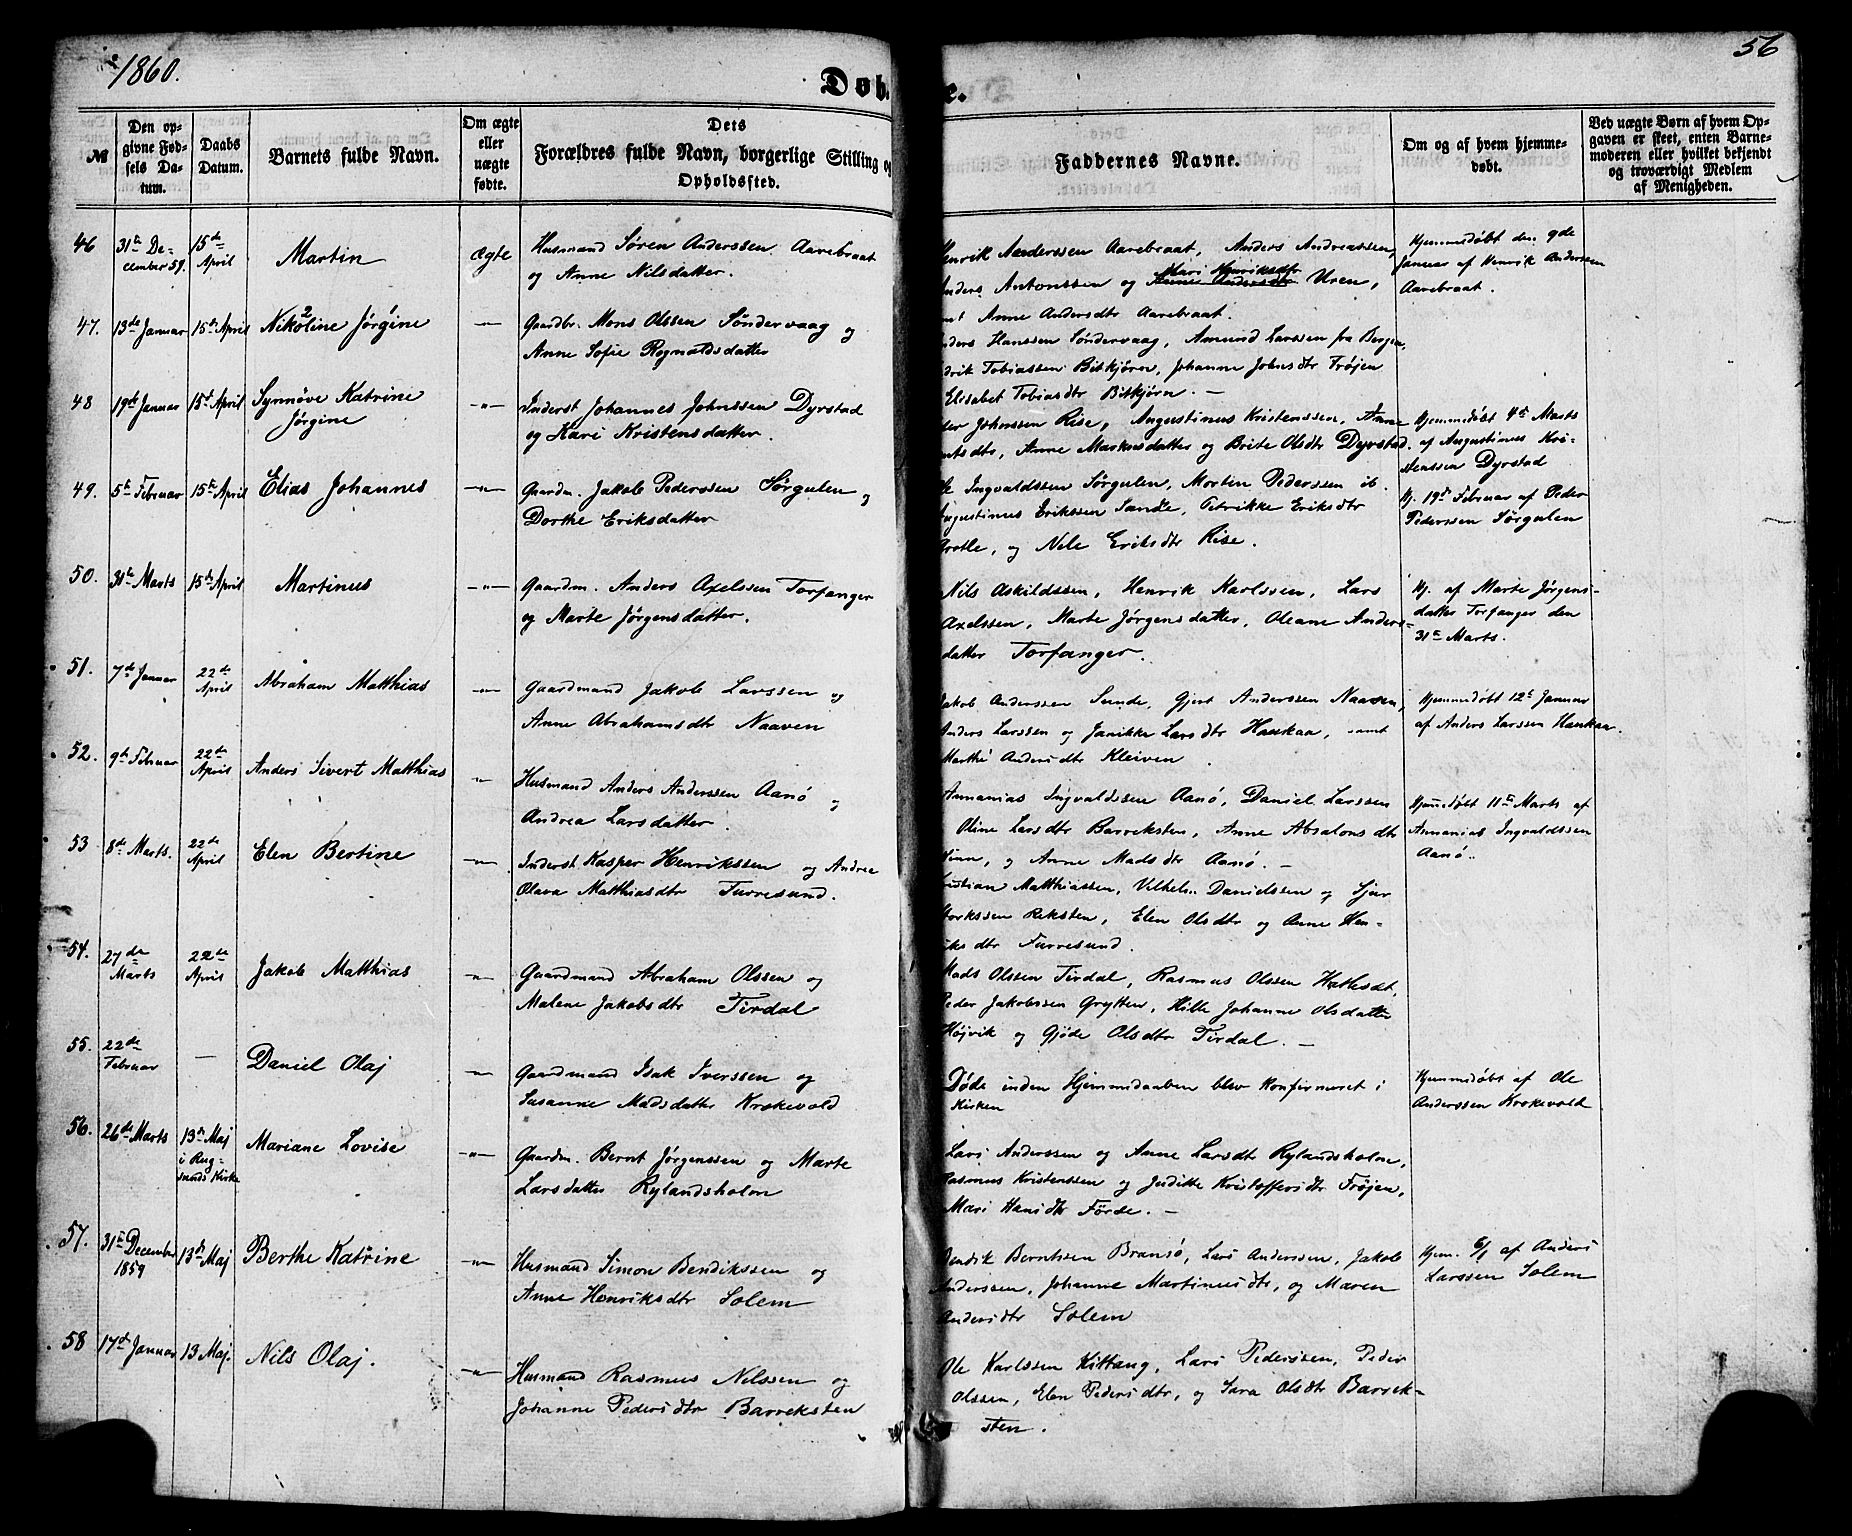 1860.
56
Døb
e.
№
Den op-
givne Fød-
sels Da-
tum.
Daabs
Datum.
Barnets fulde Navn.
Om ægte
eller
uægte
fødte.
Dets
Forældres fulde Navn, borgerlige Stilling og
Opholdssted.
Faddernes Navne.
Om og af hvem hjemme-
døbt.
Ved uægte Børn af hvem Op-
gaven er skeet, enten Barne-
moderen eller hvilket bekjendt
og troværdigt Medlem
af Menigheden.
46
31te De-
cember 59.
15de
April
Martin
Ægte
Husmand Søren Anderssen Aarebraat
og Anne Nilsdatter.
Henrik Anderssen Aarebraat, Anders Andreassen,
Anders Antonssen og Anne Andersdtr Mari Henriksdtr Uren,
samt Anne Andersdtr Aarebraat.
Hjemmedøbt den 9de
Januar af Henrik Anderssen
Aarebraat.
47.
13de Januar
15de April
Nikoline Jørgine
2
-"-
Gaardbr. Mons Olssen Søndervaag og
Anne Sofie Rognaldsdatter
Anders Hanssen Søndervaag, Amund Larssen fra Bergen,
Tobiassen Bitkjørn, Johanne Johnsdtr Frøjen
Elisabet Tobiasdtr Bitkjørn. —
48
19de Januar
15de April
Synnøve Katrine
Jørgine
-"-
Inderst Johannes Johnssen Dyrstad
og Kari Kristensdatter.
Peder Johnssen Rise, Augustinus Kristenssen, Anne
Anne Markusdatter og Brite Olsdtr Dyrstad.
Hjemmedøbt 4de Marts
af Augustinus Kri-
stenssen Dyrstad
49.
5te Februar
15de April
Elias Johannes
-"-
Gaardm. Jakob Pederssen Sørgulen og
Dorthe Eriksdatter
Ingvaldssen Sørgulen, Morten Pederssen ib.
Augustinus Erikssen Sande, Petrikke Eriksdtr
Grotle, og Nele Eriksdtr Rise.
Hj. 19de Februar af Peder
Pederssen Sørgulen
50.
31te Marts
15de April
Martinus
-"-
Gaardm. Anders Axelssen Torfanger
og Marte Jørgensdatter.
Nils Askildssen, Henrik Karlssen, Lars
Axelssen, Marte Jørgensdatter, Oleane Anders-
datter Torfanger.
Hj. af Marte Jørgens-
datter Torfanger den
31te Marts.
51.
7de Januar
22de
April
Abraham Matthias
-"-
Gaardmand Jakob Larssen og
Anne Abrahamsdtr Naaven
Jakob Anderssen Sunde, Gjert Anderssen Naaven,
Anders Larssen og Janikke Larsdtr Haukaa, samt
Marthe Andersdtr Kleiven.
Hjemmedøbt 12te Januar
af Anders Larssen Haukaa.
52.
9de Februar
22de
April
Anders Sivert Matthias
-"-
Husmand Anders Anderssen Aanø og
Andrea Larsdatter.
Annanias Ingvaldssen Aanø, Daniel Larssen
Oline Larsdtr Barreksten, Anne Absalonsdtr
og Anne Madsdtr Aanø. —
Hjemmedøbt 11te Marts af
Annanias Ingvaldssen
Aanø.
53
8de Marts.
22de
April
Elen Bertine
-"-
Inderst Kasper Henrikssen og Andrea
Olava Matthiasdtr Furresund.
Kristian Matthiassen, Vilhelm Danielssen og Sjur
Reksten, Elen Olsdtr og Anne Hen-
riksdtr Furresund.
54.
27de
Marts
22de
April
Jakob Matthias
-"-
Gaardmand Abraham Olssen og
Malene Jakobsdtr Tirdal
Mads Olssen Tirdal, Rasmus Olssen Hatleset,
Peder Jakobssen Grytten, Hille Johanne Olsdatter
Højvik og Gjøde Olsdtr Tirdal. —
55.
22de
Februar
—
Daniel Olaj
-"-
Gaardmand Isak Iverssen og
Susanne Madsdatter Krokevold
Døde inden Hjemmedaaben blev konfirmeret i
Kirken
Hjemmedøbt af Ole
Anderssen Krokevold
56.
26de Marts
13de Maj
i Rug-
sunds Kirke
Mariane Lovise
-"-
Gaardm. Bernt Jørgenssen og Marte
Larsdatter Rylandsholm
Lars Anderssen og Anne Larsdtr Rylandsholm,
Rasmus Kristenssen og Juditte Kristoffersdtr Frøjen,
Mari Hansdtr Førde. —
57.
31te December
1859
13de Maj
Berthe Katrine
-"-
Husmand Simon Bendikssen og
Anne Henriksdtr Solem
Bendik Berntssen Bransø, Lars Anderssen, Jakob
Anderssen, Johanne Martinusdtr, og Maren
Andersdtr Solem
Hjem. 6/1 af Anders
Larssen Solem
58
17de Januar
13 Maj.
Nils Olaj.
-"-
Husmand Rasmus Nilssen og
Johanne Pedersdtr Barreksten
Ole Karlssen Kittang, Lars Pederssen, Peder
Olssen, Elen Pedersdtr, og Sara Olsdtr Barrek-
sten.